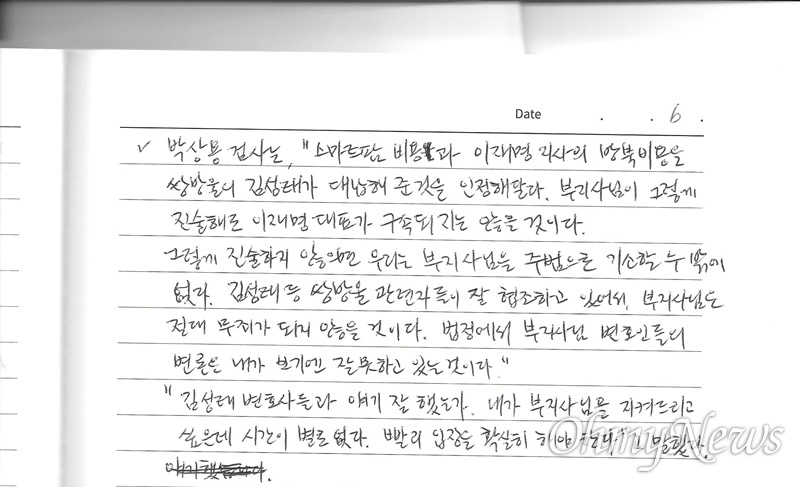 Date . . 6 .
✓ 박상용 검사는, "스마트팜 비용과 이재명 지사의 방북비용을
쌍방울의 김성태가 대납해 준것을 인정해달라. 부지사님이 그렇게
진술해도 이재명 대표가 구속되지는 않을 것이다.
그렇게 진술하지 않으면 우리는 부지사님을 주범으로 기소할 수 밖에
없다. 김성태 등 쌍방울 관련자들이 잘 협조하고 있어서, 부지사님도
절대 무죄가 되지 않을 것이다. 법정에서 부지사님 변호인들의
변론은 내가 보기엔 잘못하고 있는 것이다."
"김성태 변호사들과 얘기 잘 했는가. 내가 부지사님을 지켜드리고
싶은데 시간이 별로 없다. 빨리 입장을 확실히 해야 말했다.
OhmyNews